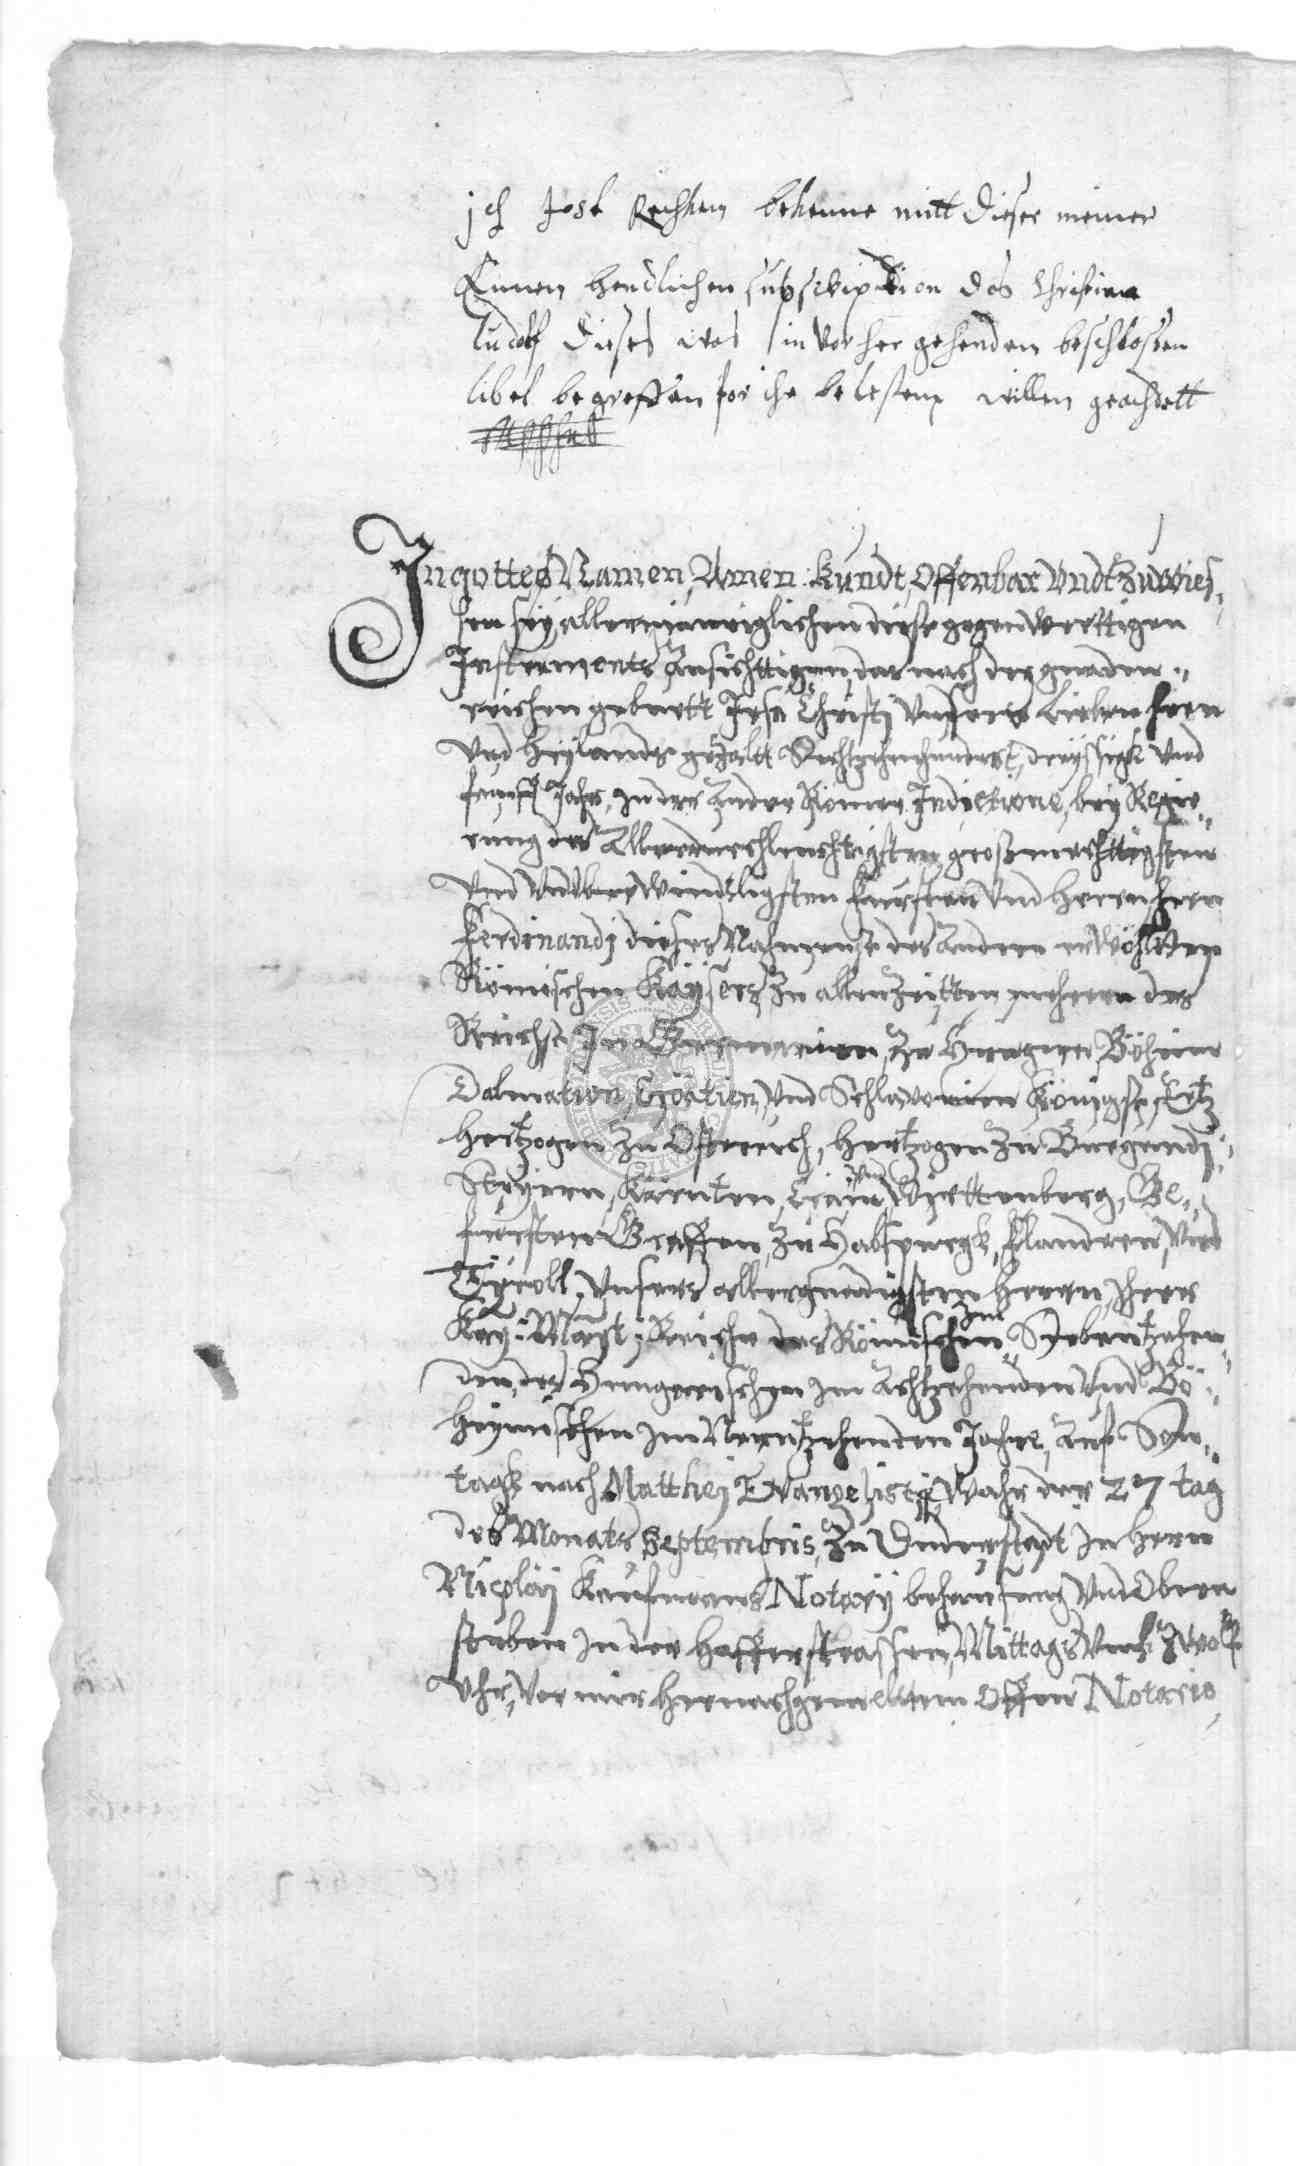 ich Jost bekenne mitt dieser meiner
Eignen hendlichen subscription das Christina
Ludolf dieses was in vorher gehenden beschlossen
libel begreffen vor ihr lesten willen geachdett
In gottes Namen, Amen: Kundt, Offenbar Undt Zuwies,
sen sey allermenniglichen diese gegenwerttigen
Instruments Ansichttigen, das nach der gnaden"
reichen geburtt Jesu Christj Unsers Lieben Hern
Und Heylandes gezaltt Sechtzehenhundert, dreyssigk Und
fünff Jahr, In der Ander Römer Indictione, bey Regie"
rung des Allerdurchleuchtigsten, grosmechttigsten
Und Unüberwindtligsten Fürsten Und Herrn Hern
Ferdinandj dieses Nahmens des Andern erwöhltten
Römischen Kaysers, Zu allen Zeitten, mehrern des
Reichs, In Germanien, Zu Hungern, Böhim
Dalmation, Croatien, Und Schlavonien Königs, Ertz
hertzogen Zu Ostereich, Hertzogen Zu Burgundj"
Steyern, Kärnten, Crain Und Wirttenberg, Ge"
fürsten Graffen, Zu Habspurgk, Flandren, Und
Tyroll, Unsers allergnedigsten Herrn, Ihrer
Kay: Mayt: Reiche des Römischen Im Siebentzehen"
den, des Hungerischen Im Achtzehenden Und Bö"
heymischen Im Neuntzehenden Jahre, Auf Son"
tagk nach Matthej Evangelistæ, Wahr der 27 tag
des Monats Septembris, Zu Duderstadt In Herrn
Nicolaj Kaufmans Notarij behausung Und Obern
stuben In der Hafferstrassen, Mittags Umb Zwolf
Uhr, Vor mir Hernachgemeltem Offen Notario,